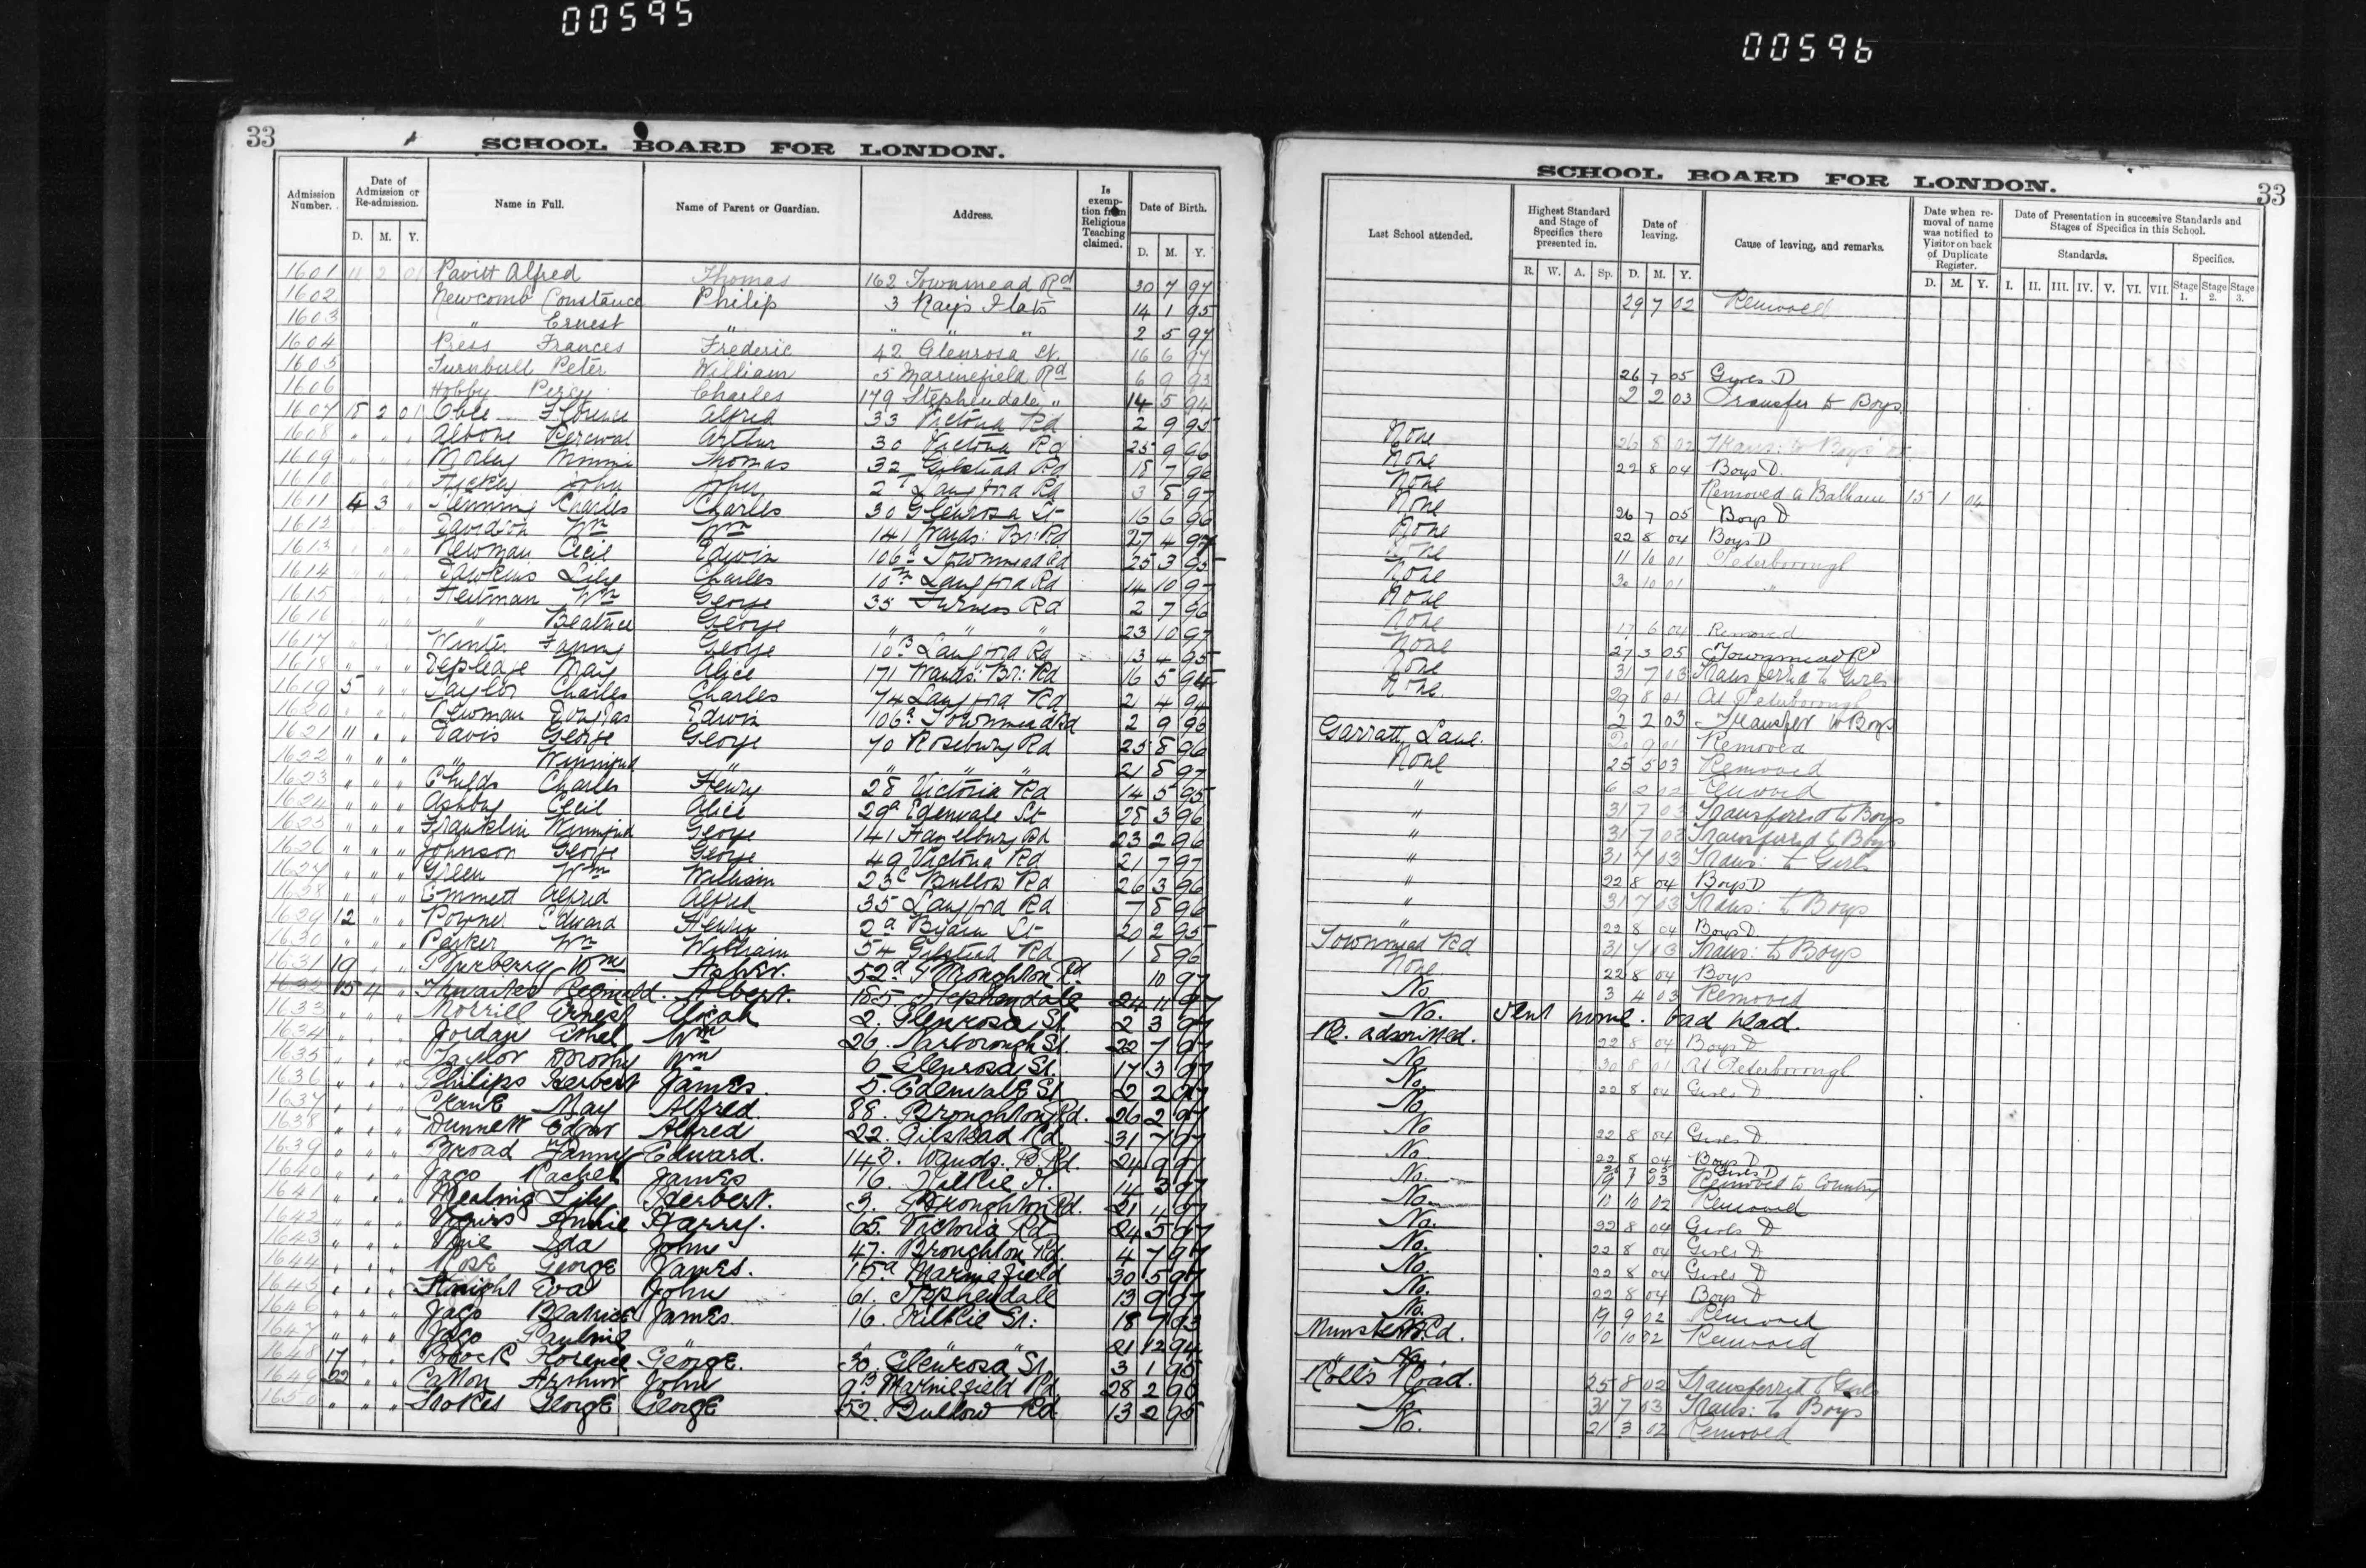 00595
00596
33
SCHOOL BOARD FOR LONDON.
Admission Number.
Date of Admission or Re-admission.
Name in Full.
Name of Parent or Guardian.
Address.
Is exemption from Religious Teaching claimed.
Date of Birth.
D. M. Y.
D. M. Y.
1601 11 2 01 Pavitt Alfred Thomas 162 Townmead Rd 30 7 97
1602 Newcomb Constance Philip 3 Rays Flats 14 1 95
1603 " Ernest " " " " 2 5 97
1604 Press Frances Frederic 42 Glenrosa St. 16 6 97
1605 Turnbull Peter William 5 Marinefield Rd 6 9 93
1606 Hobby Percy Charles 179 Stephendale " 14 5 94
1607 18 2 01 Florence Alfred 33 Victoria Rd 2 9 95
1608 " " " Albone Percival Arthur 30 Victoria Rd 25 9 96
1609 " " " Morley Minnie Thomas 32 Gilstead Rd 18 7 96
1610 " " John John Langford Rd 3 8 97
1611 4 3 " Flemming Charles Charles 30 Glenrosa St 16 6 96
1612 Davidson Wm Wm 141 Wands: Br: Rd 27 4 97
1613 Newman Cecil Edwin 106a Townmead Rd 25 3 95
1614 Hawkins Lily Charles Langford Rd 14 10 97
1615 Wm George 35 Furness Rd 2 7 96
1616 " Beatrice George " " " 23 10 97
1617 Winter Fanny George 10B Langford Rd 13 4 95
1618 " " " Depledge May Alice 171 Wands: Br: Rd 16 5 94
1619 5 " " Taylor Charles Charles 74 Langford Rd 21 4 94
1620 " " " Newman Douglas Edwin 106a Townmead Rd 2 9 93
1621 11 " " Davis George George 70 Rosebury Rd 25 8 96
1622 " " " " Winnifred " " " " 21 8 97
1623 " " " Childs Charles Henry 28 Victoria Rd 14 5 95
1624 " " " Ashby Cecil Alice 29a Edenvale St 28 3 96
1625 " " " Franklin Winnifred George 141 Hazelbury Rd 23 2 96
1626 " " " Johnson George George 49 Victoria Rd 21 7 97
1627 " " " Green Wm William 23c Bullow Rd 26 3 96
1628 " " " Emmett Alfred Alfred 35 Langford Rd 7 8 96
1629 12 " " Powner Edward Henry 2a Byam St 20 2 95
1630 " " " Parker Wm William 54 Gilstead Rd 1 8 96
1631 19 " " Wm 52a Broughton Rd 10 97
1632 15 4 " Thwaites Reginald. Albert. 185 Stephendale 24 11 97
1633 " " " Morrill Ernest Elijah 2. Glenrosa St. 2 3 97
1634 " " " Jordan Ethel Wm 26. Narborough St. 22 7 97
1635 " " " Taylor Dorothy Wm 6 Glenrosa St. 17 3 97
1636 " " " Philips Herbert James. 5. Edenvale St. 2 2 97
1637 " " " Crane May Alfred. 88. Broughton Rd. 26 2 97
1638 " " " Dunnett Edgar Alfred 22. Gilstead Rd. 31 7 97
1639 " " " Broad Fanny Edward. 143. Wands. B. Rd. 24 9 97
1640 " " " Jago Rachel James 16. Kilkie St. 14 3 97
1641 " " " Mealing Lily Herbert. 3. Broughton Rd. 21 4 97
1642 " " " Annie Harry. 65. Victoria Rd 24 5 97
1643 " " " Ida John 47. Broughton Rd. 4 7 97
1644 " " " Rose George James. 15a Marinefield 30 5 97
1645 " " " Knight Eva John 61. Stephendale 13 9 97
1646 " " " Jago Beatrice James. 16. Kilkie St: 18 7 93
1647 " " " Jago Pauline " " " 21 12 94
1648 17 " " Pocock Florence George. 30. Glenrosa St. 3 1 95
1649 22 " " Catton Arthur John 9B Marinefield Rd 28 2 96
1650 " " " Stokes George George 52. Bullow Rd 13 2 95
33
SCHOOL BOARD FOR LONDON.
Last School attended.
Highest Standard and Stage of Specifics there presented in.
Date of leaving.
Cause of leaving, and remarks.
Date when removal of name was notified to Visitor on back of Duplicate Register.
Date of Presentation in successive Standards and Stages of Specifics in this School.
Standards.
Specifics.
R. W. A. Sp. D. M. Y. D. M. Y. I. II. III. IV. V. VI. VII. Stage 1. Stage 2. Stage 3.
29 7 02 Removed
26 7 05 Girls D
2 2 03 Transfer to Boys
None 26 8 02 Trans: to Boys
None 22 8 04 Boys D.
None Removed to Balham 15 1 04
None 26 7 05 Boys D
None 22 8 04 Boys D
None 11 10 01 Peterborough
None 30 10 01 "
None
None 17 6 04 Removed
None 27 3 05 Townmead Rd
None 31 7 03 Transferred to Girls
None. 29 8 01 At Peterborough
2 2 03 Transfer to Boys
Garratt Lane. 9 01 Removed
None 25 5 03 Removed
" 6 2 02 Removed
" 31 7 03 Transferred to Boys
" 31 7 03 Transferred to Boys
" 31 7 03 Trans: to Girls
" 22 8 04 Boys D
" 31 7 03 Trans: to Boys
" 22 8 04 Boys D
Townmead Rd 31 7 03 Trans: to Boys
None 22 8 04 Boys
No 3 4 03 Removed
No. Sent home. bad head.
Re. admitted. 22 8 04 Boys D
No 30 8 01 At Peterborough
No. 22 8 04 Girls D.
No
No 22 8 04 Girls D.
No. 22 8 04 Boys D
26 7 05 Girls D
No. 19 7 03 Removed to Country
No. 10 10 02 Removed
No. 22 8 04 Girls D
No. 22 8 04 Girls D
No. 22 8 04 Girls D
No. 22 8 04 Boys D
No. 19 9 02 Removed
Munster Rd. 10 10 02 Removed
" No.
Rolls Road. 25 8 02 Transferred to Girls
No 31 7 03 Trans: to Boys
No. 21 3 02 Removed